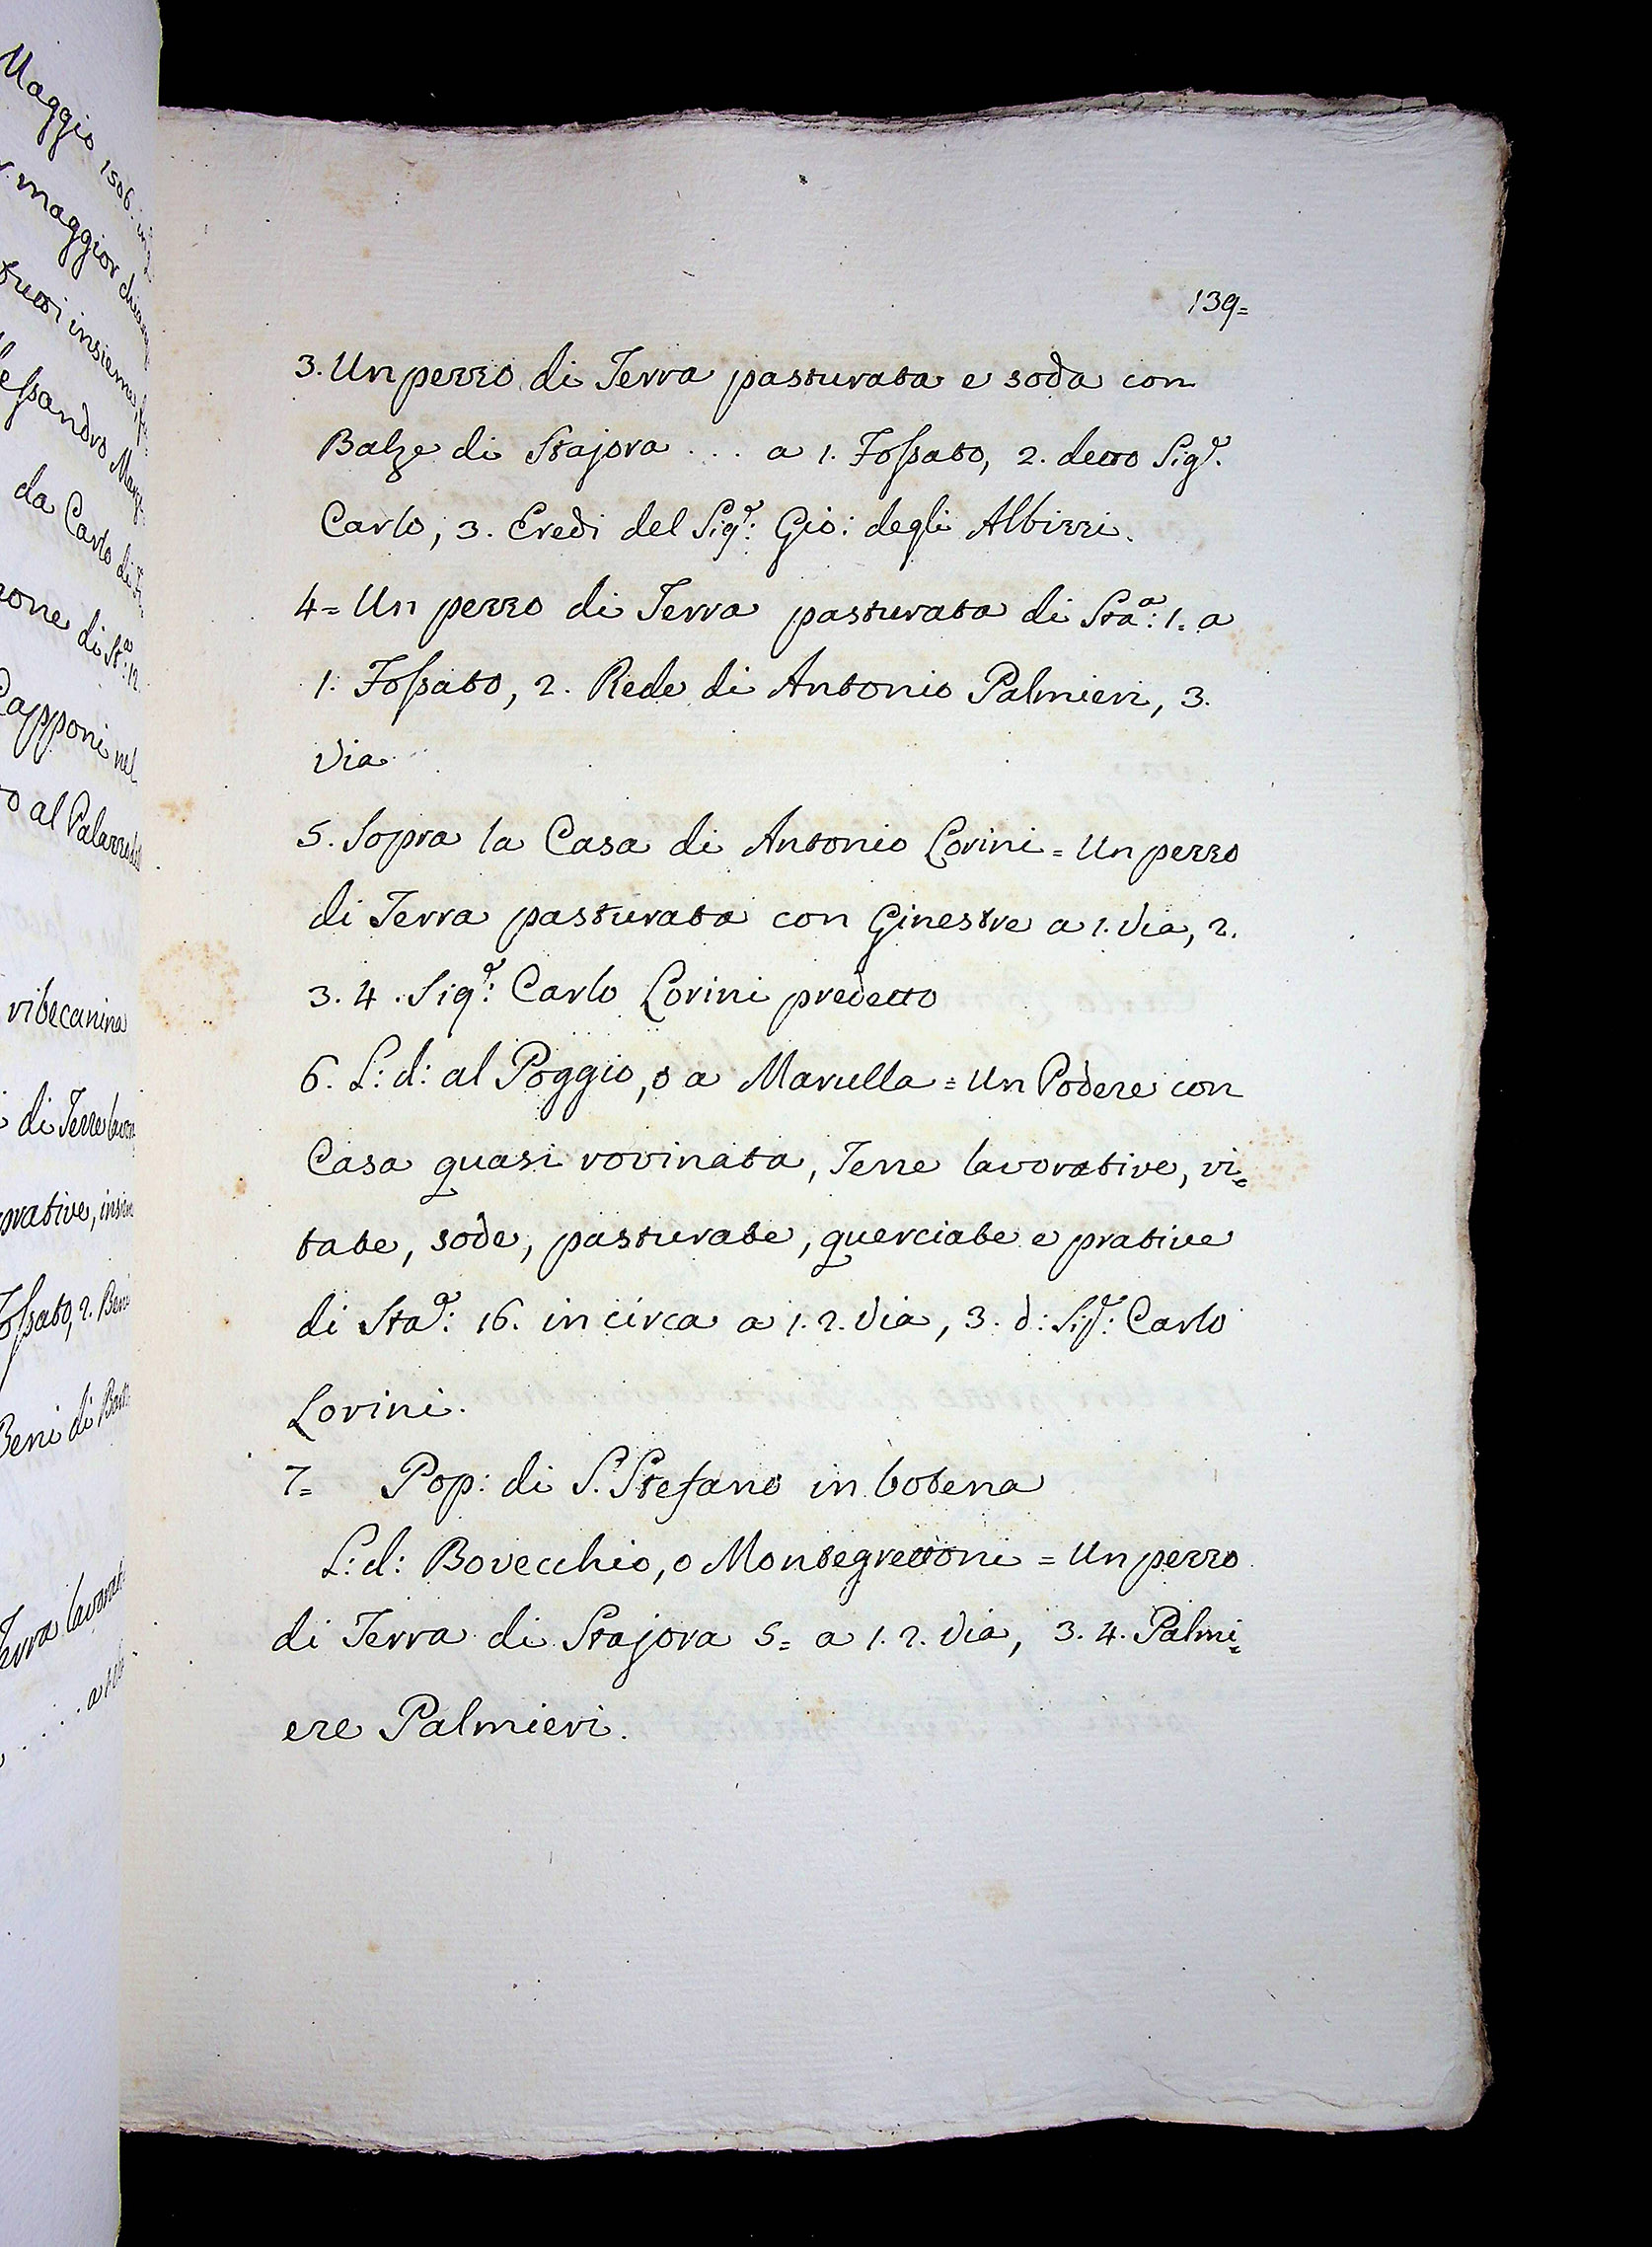 Maggio 1506.
maggior
insieme
lessandro
da Carlo di
zone di St.ª: 12
Capponi nel
o al Palazzo
ribecanina
di Terre lavor
orative, insie
Fossato, 2. Beni
Beni di
Terra lavorat
139=
3. Un pezzo di Terra pasturata e soda con
Balze di Stajora ... a 1. Fossato, 2. detto Sig.r
Carlo, 3. Eredi del Sig.r: Gio: degli Albizzi.
4= Un pezzo di Terra pasturata di Sta.a: 1. a
1. Fossato, 2. Rede di Antonio Palmieri, 3.
Via
5. Sopra la Casa di Antonio Lorini = Un pezzo
di Terra pasturata con Ginestre a 1. Via, 2.
3. 4. Sig.r: Carlo Lorini predetto
6. L: d: al Poggio, o a Marulla = Un Podere con
Casa quasi rovinata, Terre lavorative, vi=
tate, sode, pasturate, querciate e prative
di Sta.a: 16. in circa a 1. 2. Via, 3. d: Sig.r: Carlo
Lorini.
7= Pop: di S. Stefano in botena
L: d: Bovecchio, o Montegrettoni = Un pezzo
di Terra di Stajora 5= a 1. 2. Via, 3. 4. Palmi=
ere Palmieri.